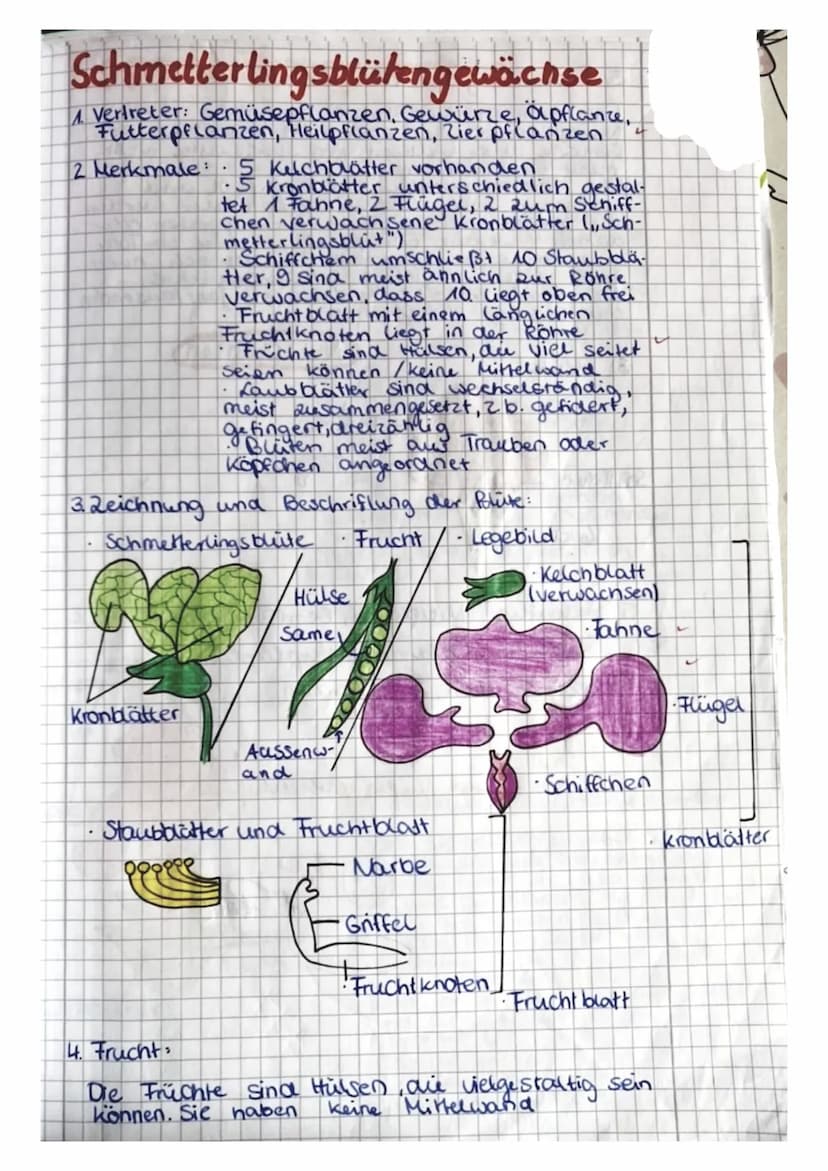 Schmetterlingsblütengewächse
1. Vertreter: Gemüsepflanzen, Gewürze, Ölpflanze,
Futterpflanzen, Heilpflanzen, Zierpflanzen
2 Merkmale: · 5 Kelchblätter vorhanden
· 5 Kronblätter unterschiedlich gestal-
tet 1 Fahne, 2 Flügel, 2 zum Schiff-
chen verwachsene Kronblätter („Sch-
metterlingsblüt")
· Schiffchem umschließt 10 Staubblä-
tter, 9 sind meist ähnlich zur Röhre
verwachsen, dass 10. liegt oben frei
· Fruchtblatt mit einem länglichen
Fruchtknoten liegt in der Röhre
· Früchte sind Hülsen, die viel seitet
seien können / keine Mittelwand
· Laubblätter sind wechselständig,
meist zusammengesetzt, z b. gefidert,
gefingert, dreizählig
· Blüten meist aus Trauben oder
Köpfchen angeordnet
3. Zeichnung und Beschriftung der Blüte:
· Schmetterlingsblüte · Frucht · Legebild
Kronblätter
Hülse
Same
Aussenw-
and
· Kelchblatt
(verwachsen)
· Fahne
· Flügel
· Schiffchen
· Kronblätter
· Staubblätter und Fruchtblatt
Narbe
Griffel
Fruchtknoten
· Fruchtblatt
4. Frucht:
Die Früchte sind Hülsen, die vielgestaltig sein
können. Sie haben keine Mittelwand